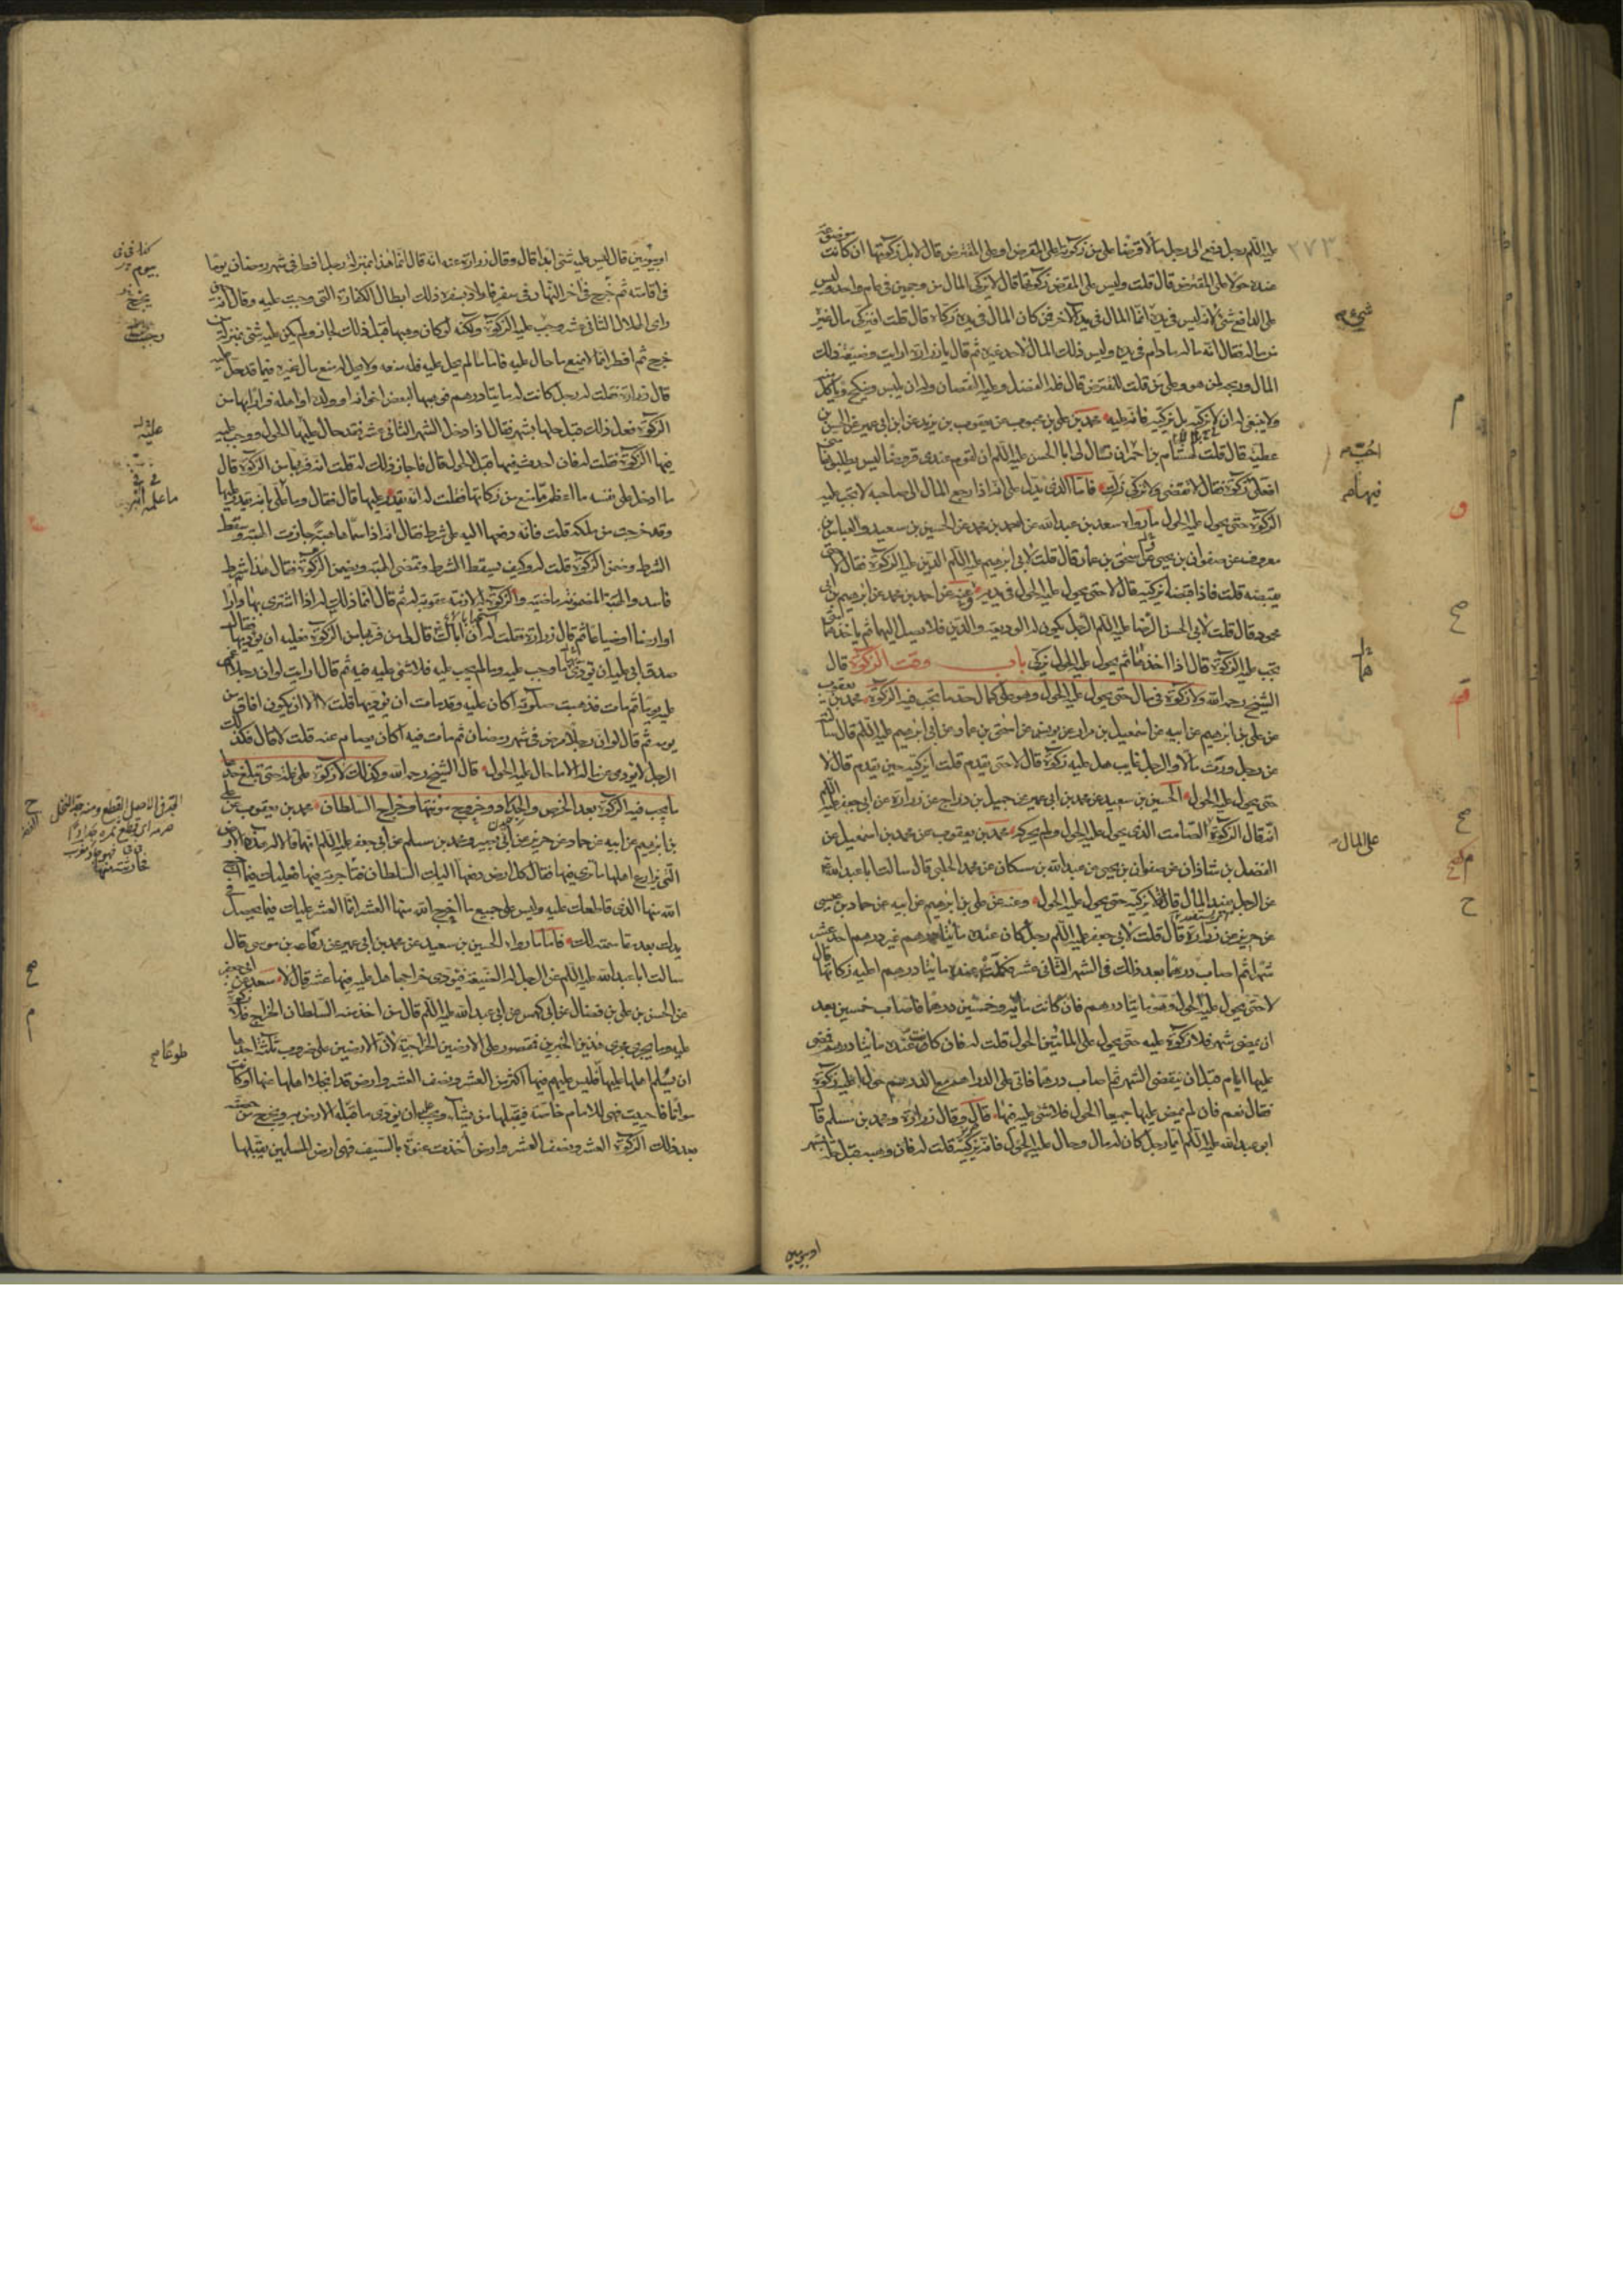 عليه السلم رجل دفع الى رجل مالا قرضا على من زكوته على المقرض او على المقترض قال لا بل زكوتها ان كانت موضوعة
عنده حولا على المقترض قال قلت وليس على المقرض زكوتها قال لا يزكى المال من وجهين فى عام واحد وليس
على الدافع شئ لانه ليس فى يده انما المال فى يد الآخر فمن كان المال فى يده زكاه قال قلت افيزكى مال غيره
من ماله فقال انه ماله ما دام فى يده وليس ذلك المال لاحد غيره ثم قال يا زرارة ارايت وضيعة ذلك
المال وربحه لمن هو وعلى من قلت للمقترض قال فله الفضل وعليه النقصان وله ان يلبس وينكح وياكل منه
ولا ينبغى له ان لا يزكيه بل يزكيه فانه عليه محمد بن على بن محبوب عن يعقوب بن يزيد عن ابن ابى عمير عن الحسن بن
عطية قال قلت لهشام بن احمر انى تسال لى ابا الحسن عليه السلم ان لقوم عندى قروضا ليس يطلبونها منى
افعلى زكوة فقال لا تقضى ولا تزكى زك فاما الذى يدل على انه اذا رجع المال الى صاحبه لا تجب عليه
الزكوة حتى يحول عليه الحول ما رواه سعد بن عبد الله عن احمد بن محمد عن الحسين بن سعيد والعباس بن
معروف عن صفوان بن يحيى عن اسحق بن عمار قال قلت لابى ابرهيم عليه السلم الدين عليه الزكوة فقال لا حتى
يقبضه قلت فاذا قبضه ايزكيه قال لا حتى يحول عليه الحول فى يديه وعنه عن احمد بن محمد عن ابرهيم بن ابى
محمود قال قلت لابى الحسن الرضا عليه السلم الرجل يكون له الوديعة والدين فلا يصل اليهما ثم ياخذهما متى
تجب عليه الزكوة قال اذا اخذهما ثم يحول عليه الحول يزكى باب وقت الزكوة قال
الشيخ رحمه الله ولا زكوة فى مال حتى يحول عليه الحول وهو على كمال حد ما تجب فيه الزكوة محمد بن يعقوب
عن على بن ابرهيم عن ابيه عن اسمعيل بن مرار عن يونس عن اسحق بن عمار عن ابى ابرهيم عليه السلم قال سالته
عن رجل ورث مالا والرجل غايب هل عليه زكوة قال لا حتى يقدم قلت ايزكيه حين يقدم قال لا
حتى يحول عليه الحول الحسين بن سعيد عن محمد بن ابى عمير عن جميل بن دراج عن زرارة عن ابى جعفر عليه السلم
انه قال الزكوة على المال الصامت الذى يحول عليه الحول ولم يحركه محمد بن يعقوب عن محمد بن اسمعيل عن
الفضل بن شاذان عن صفوان بن يحيى عن عبد الله بن مسكان عن محمد الحلبى قال سالت ابا عبد الله
عن الرجل يفيد المال قال لا يزكيه حتى يحول عليه الحول وعنه عن على بن ابرهيم عن ابيه عن حماد بن عيسى
عن حريز عن زرارة قال قلت لابى جعفر عليه السلم رجل كان عنده مائتا درهم غير درهم احد عشر
شهرا ثم اصاب درهما بعد ذلك فى الشهر الثانى عشر فكملت عنده مائتا درهم اعليه زكاتها قال
لا حتى يحول عليه الحول وهى مائتا درهم فان كانت مائة وخمسين درهما فاصاب خمسين بعد
ان يمضى شهر فلا زكوة عليه حتى يحول على المائتين الحول قلت له فان كانت عنده مائتا درهم فمضى
عليها ايام قبل ان ينقضى الشهر ثم اصاب درهما فاتى على الدراهم مع الدرهم حول اعليه زكوة
فقال نعم فان لم يمض عليها جميعا الحول فلا شئ عليه فيها قال وقال زرارة ومحمد بن مسلم قال
ابو عبد الله عليه السلم ايما رجل كان له مال وحال عليه الحول فانه يزكيه قلت له فان وهبه قبل حله بشهر
او بيومين
٢٧٣
شئ
احب
فيهما
على المال
او بيومين قال ليس عليه شئ ابدا قال وقال زرارة عنه انه قال انما هذا بمنزلة رجل افطر فى شهر رمضان يوما
فى اقامته ثم خرج فى آخر النهار فى سفر فاراد بسفره ذلك ابطال الكفارة التى وجبت عليه وقال انه حين
راى الهلال الثانى عشر وجبت عليه الزكوة ولكنه لو كان وهبها قبل ذلك لجاز ولم يكن عليه شئ بمنزلة من
خرج ثم افطر انما لا يمنع ما حال عليه فاما ما لم يحل عليه فله منعه ولا يحل له منع مال غيره فيما قد حل عليه
قال زرارة فقلت له رجل كانت له مائتا درهم فوهبها لبعض اخوانه او ولده او اهله فرارا بها من
الزكوة فعل ذلك قبل حلها بشهر فقال اذا دخل الشهر الثانى عشر فقد حال عليها الحول ووجبت عليه
فيها الزكوة فقلت له فان احدث فيها قبل الحول قال فاجاز ذلك له قلت انه فر بها من الزكوة قال
ما ادخل على نفسه اعظم مما منع من زكاتها فقلت له انه يقدر عليها قال فقال وما علمى بانه يقدر عليها
وقد خرجت من ملكه قلت فانه دفعها اليه على شرط فقال انه اذا سماها هبة جازت الهبة وسقط
الشرط وضمن الزكوة قلت له وكيف يسقط الشرط وتمضى الهبة ويضمن الزكوة فقال هذا شرط
فاسد والهبة المضمونة ماضية والزكوة له لازمة عقوبة له ثم قال انما ذلك له اذا اشترى بها دارا
او ارضا او ضياعا ثم قال زرارة فقلت له ان اباك قال لى من فر بها من الزكوة فعليه ان يؤديها فقال
صدق ابى عليه ان يؤدى ما وجب عليه وما لم يجب عليه فلا شئ عليه فيه ثم قال ارايت لو ان رجلا اغمى
عليه يوما ثم مات فذهبت صلوته اكان عليه وقد مات ان يؤديها قلت لا الا ان يكون افاق من
يومه ثم قال لو ان رجلا مرض فى شهر رمضان ثم مات فيه اكان يصام عنه قلت لا قال فكذلك
الرجل لا يؤدى عن ماله الا ما حال عليه الحول قال الشيخ رحمه الله وكذلك لا زكوة على غلة حتى تبلغ حد
ما يجب فيه الزكوة بعد الخرص والجذاذ وخروج مؤنتها وخراج السلطان محمد بن يعقوب عن على
بن ابرهيم عن ابيه عن حماد عن حريز عن ابى بصير ومحمد بن مسلم عن ابى جعفر عليه السلم انهما قالا له هذه الارض
التى يزارع اهلها ما ترى فيها فقال كل ارض دفعها اليك السلطان فما حرثته فيها فعليك فيما اخرج
الله منها الذى قاطعك عليه وليس على جميع ما اخرج الله منها العشر انما العشر عليك فيما يحصل فى
يدك بعد مقاسمته لك فاما ما رواه الحسين بن سعيد عن محمد بن ابى عمير عن رفاعة بن موسى قال
سالت ابا عبد الله عليه السلم عن الرجل له الضيعة فيؤدى خراجها هل عليه فيها عشر قال لا سعد عن ابى جعفر
عن الحسن بن على بن فضال عن ابى كهمس عن ابى عبد الله عليه السلم قال من اخذ منه السلطان الخراج فلا زكوة
عليه وما يجرى مجرى هذين الخبرين فمقصور على الارضين الخراجية لان الارضين على ضروب ثلثة احدها
ان يسلم اهلها عليها فليس عليهم فيها اكثر من العشر ونصف العشر وارض قد انجلا اهلها عنها او كانت
مواتا فاحييت فهى للامام خاصة فيقبلها من يشاء ويجب عليه ان يؤدى ما قبله الارض به ويخرج من حصته
بعد ذلك الزكوة العشر ونصف العشر وارض اخذت عنوة بالسيف فهى ارض للمسلمين يقبلها
بيوم
يخرج
وجبت
عليه
طوعا